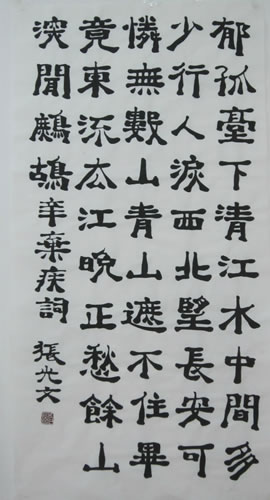 郁孤臺下清江水中間多
少行人淚西北望長安可
憐無數山青山遮不住畢
竟東流去江晚正愁餘山
深聞鷓鴣辛棄疾詞 張光文